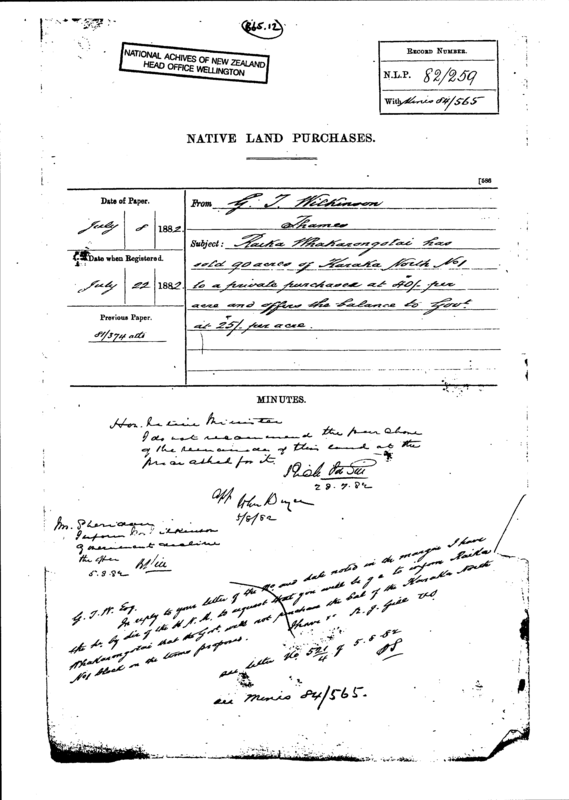 865.12
NATIONAL ACHIVES OF NEW ZEALAND
HEAD OFFICE WELLINGTON
RECORD NUMBER.
N.L.P. 82/259
With Mines 84/565
NATIVE LAND PURCHASES.
[586
Date of Paper.
July 8 1882.
Date when Registered.
July 22 1882.
Previous Paper.
81/374 atts
From G. T. Wilkinson
Thames
Subject: Raika Whakarongotai has
sold 90 acres of Karaka North No 1
to a private purchased at 40/- per
acre and offers the balance to Govt.
at 25/- per acre.
MINUTES.
Hon. Native Minister
I do not recommend the purchase
of the remainder of this land at the
price asked for it.
28.7.82
John Bryce
5/8/82
Mr. Sheridan
Inform Mr. Wilkinson
Government decline
the offer
5.8.82
G. T. W. Esq.
In reply to your letter of the no and date noted in the margin I have
the hr. by dir. of the H.N.M. to request that you will be g. e. to inform Raika
Whakarongotai that the Govt. will not purchase the bal of the Karaka North
No 1 block on the terms proposed.
I have R. J. Gill US
see letter No 521/4 of 5.8.82
see Mines 84/565.